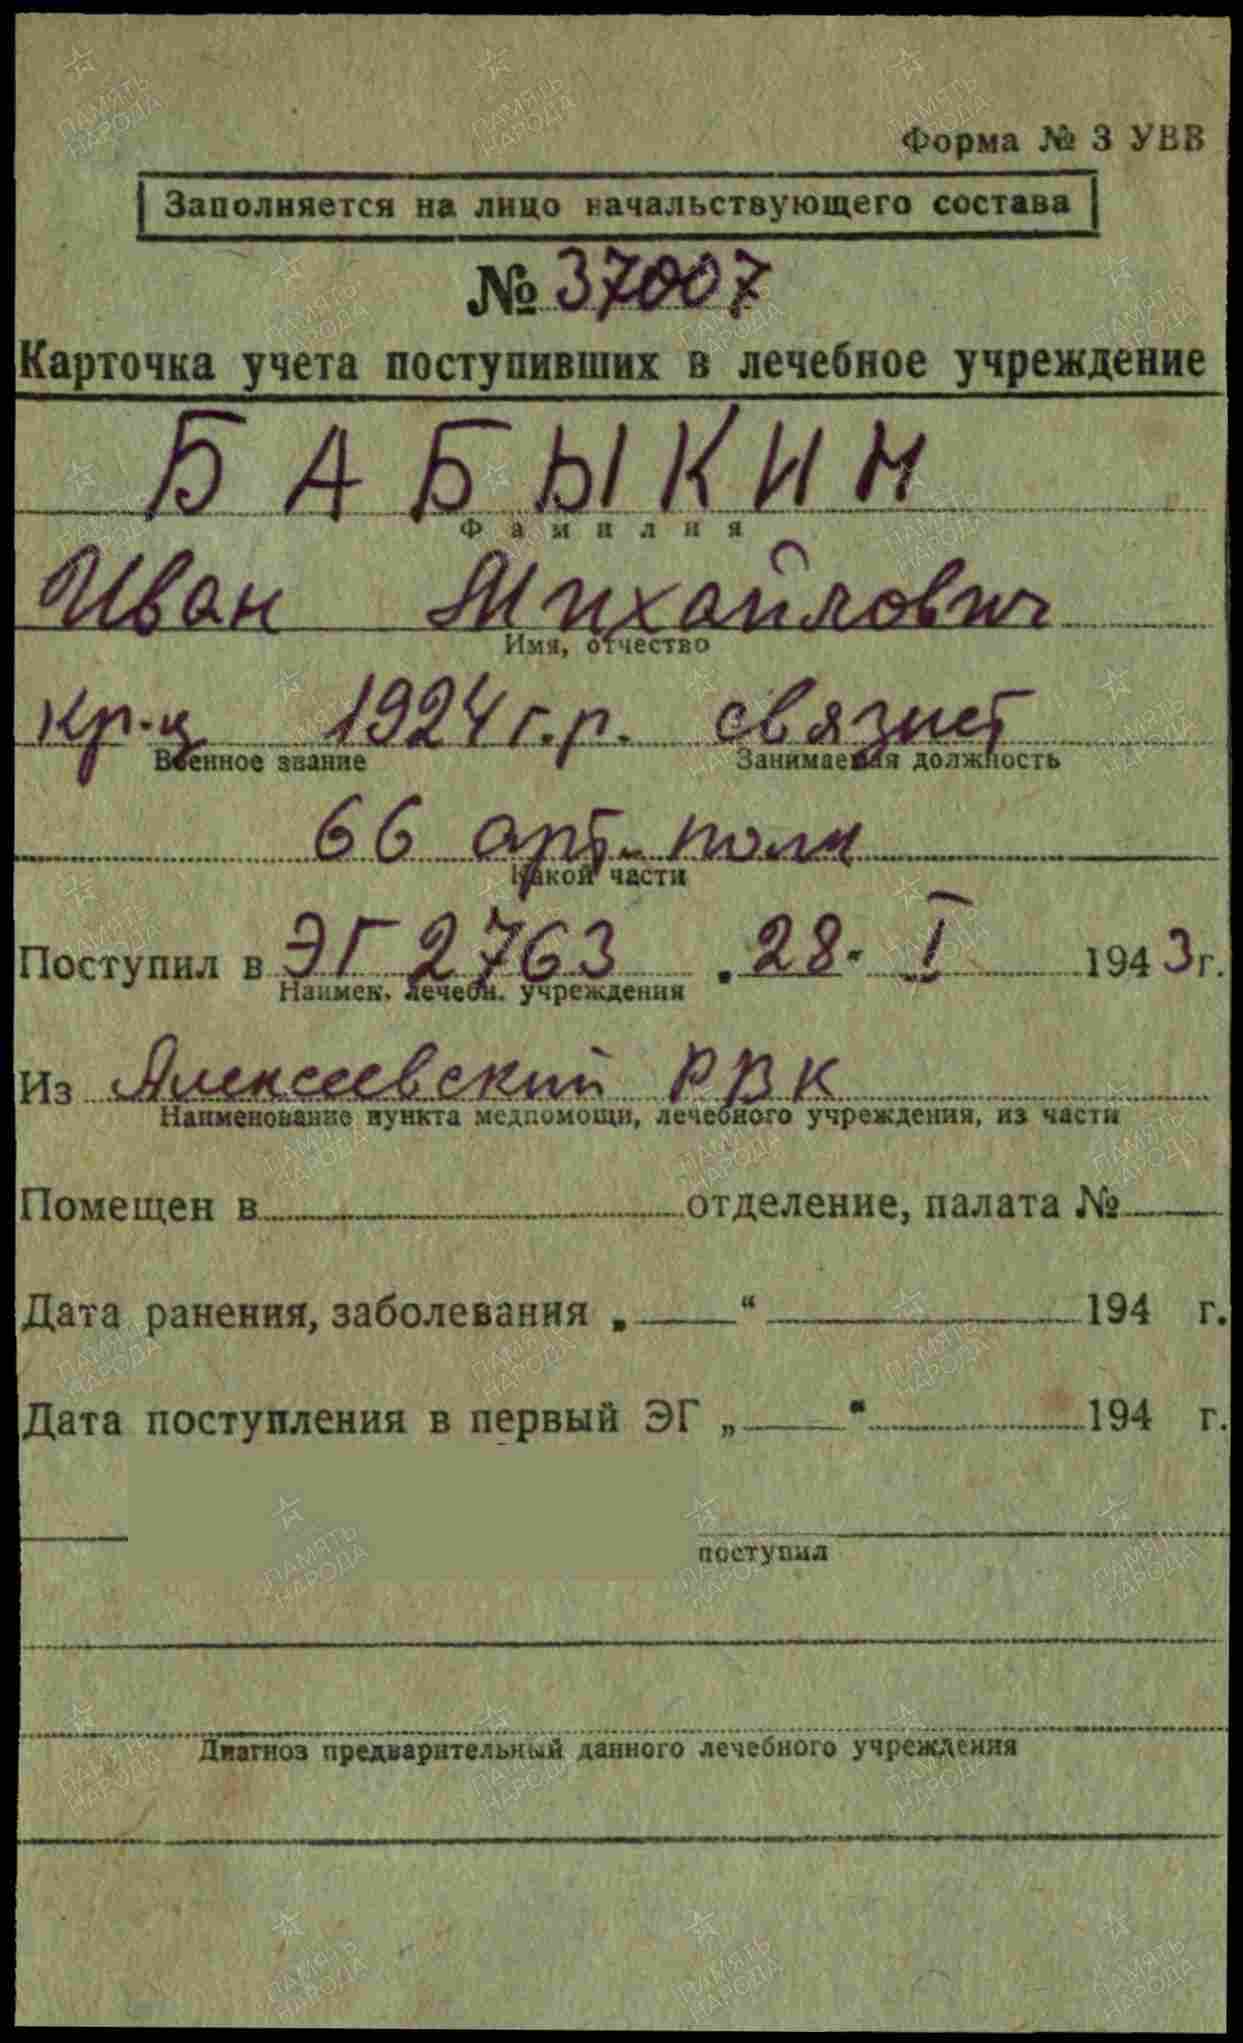 Форма № 3 УВВ
Заполняется на лицо начальствующего состава
№ 37007
Карточка учета поступивших в лечебное учреждение
БАБЫКИН
Фамилия
Иван Михайлович
Имя, отчество
кр-ц 1924 г.р. связист
Военное звание Занимаемая должность
66 арт. полк
Какой части
Поступил в ЭГ 2763 . 28. I 1943 г.
Наимен. лечебн. учреждения
Из Алексеевский РВК
Наименование пункта медпомощи, лечебного учреждения, из части
Помещен в отделение, палата №
Дата ранения, заболевания „ “ 194 г.
Дата поступления в первый ЭГ „ “ 194 г.
поступил
Диагноз предварительный данного лечебного учреждения
ПАМЯТЬ НАРОДА